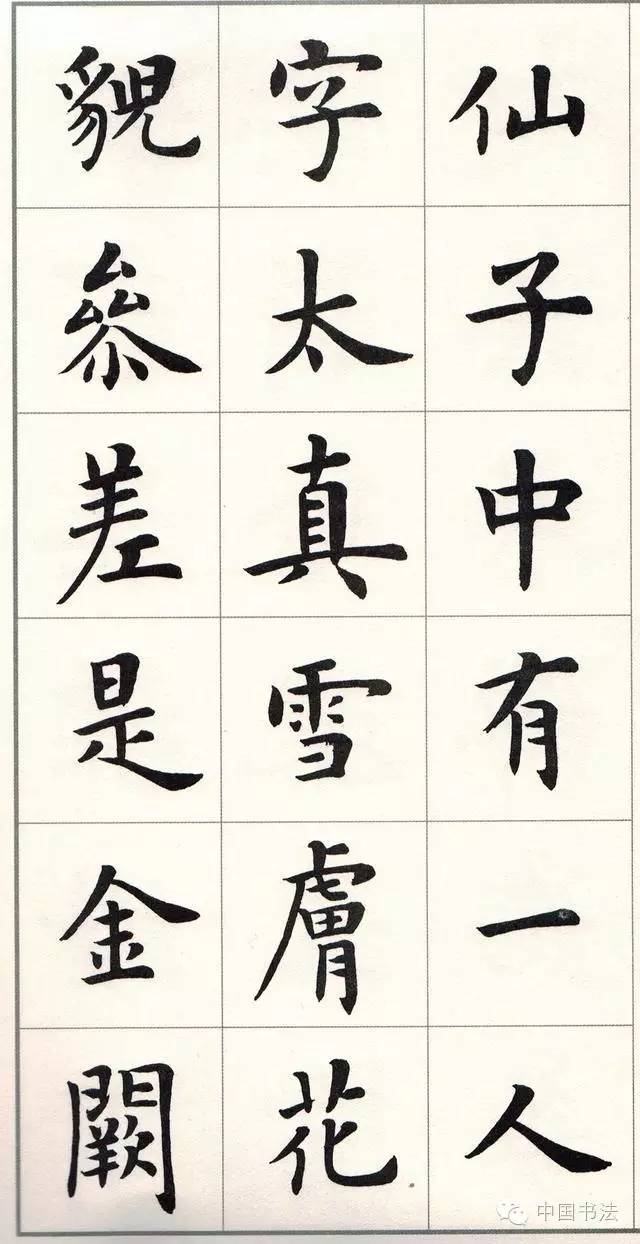 仙子中有一人
字太真雪膚花
貌參差是金闕
中国书法